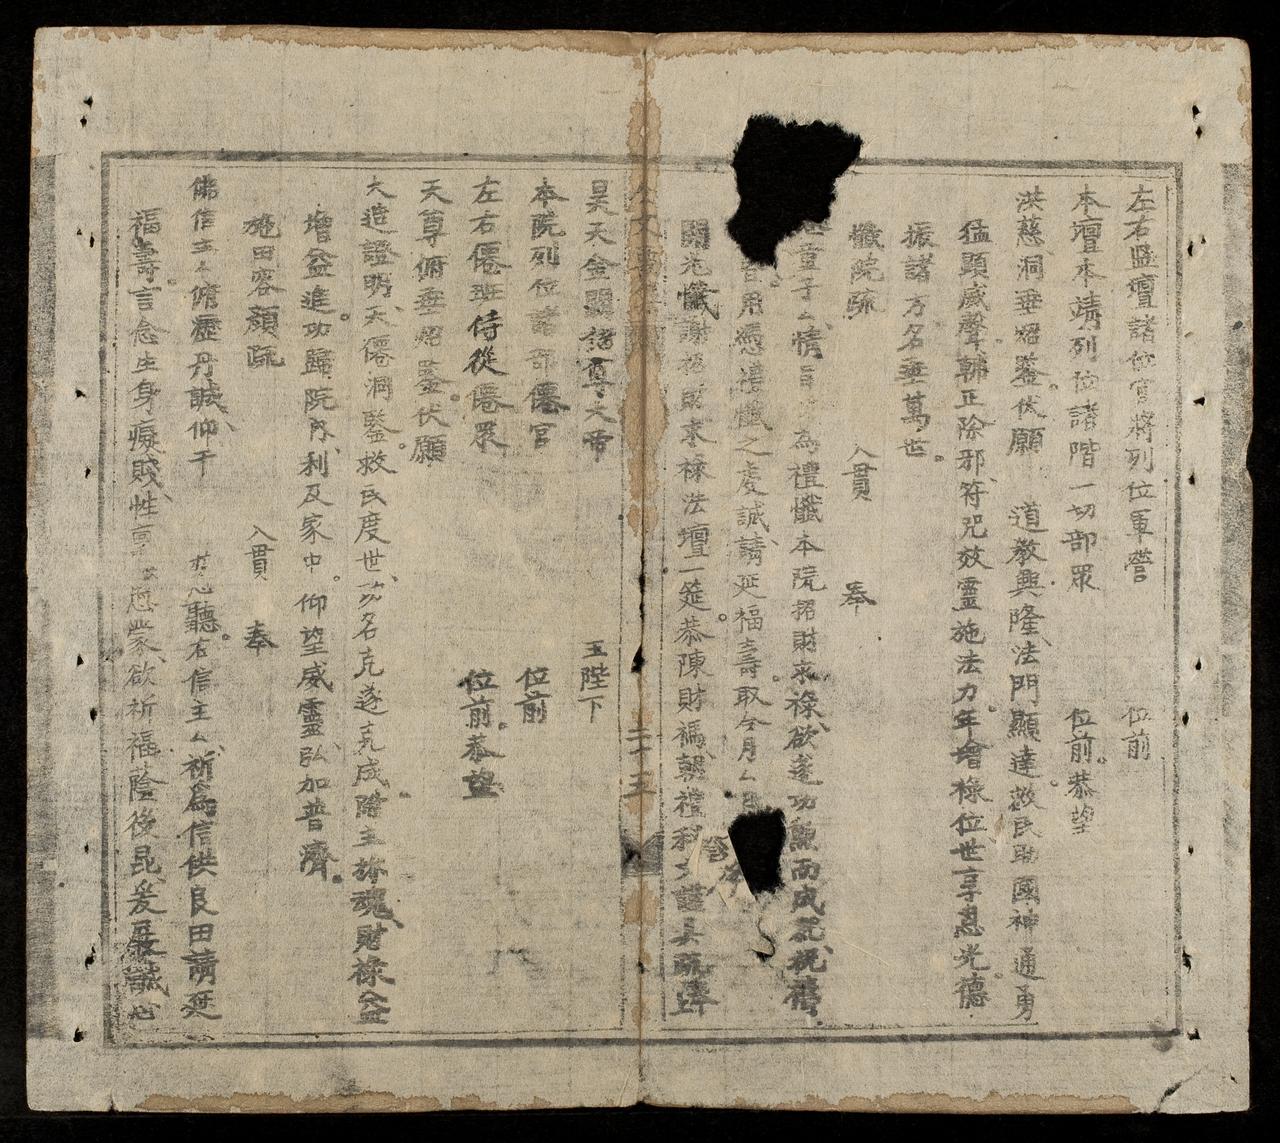 左右監壇諸位官將列位軍營 位前
本壇本靖列位諸階一切部眾 位前恭望
洪慈洞垂昭鑒伏願 道教興隆法門顯達救民助國神通勇
猛顯威聲輔正除邪符咒效靈施法力年增祿位世享恩光德
振諸方名垂萬世
懺院疏 入貫 奉
童子厶情旨 為禮懺本院招財求祿欲遂功 而成 祝禱
用憑禮懺之處誠請延福壽取今月厶
開光懺謝招財求祿法壇一筵恭陳財禡朝禮科文謹具疏
二十三
昊天金闕諸尊大帝 玉陛下
本院列位諸部僊官 位前
左右僊班侍從僊眾 位前恭望
天尊俯垂昭鑒伏願
大造證明大僊洞鑒救民度世功名克遂克成陰主旅魂財祿益
增益進功歸院內利及家中仰望威靈弘加普濟
施田容顏疏 入貫 奉
佛信主厶俯瀝丹誠仰干 聽右信主厶祈為信供良田請延
福壽言念生身癡賤性 愚蒙欲祈福蔭後昆爰 誠心